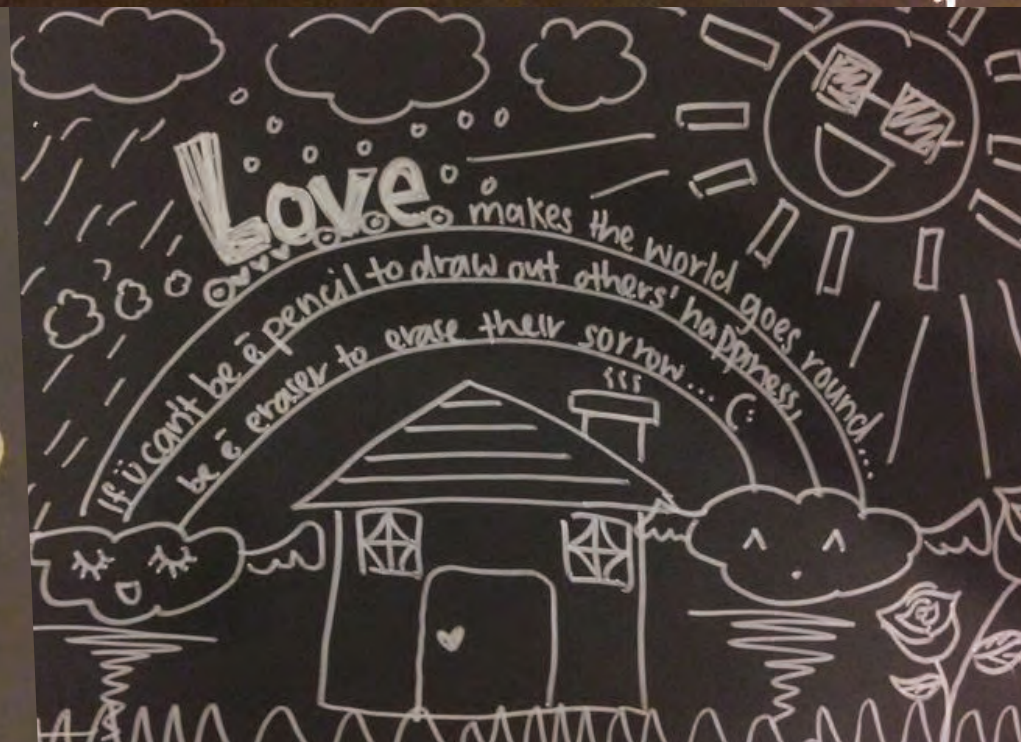 Love makes the world goes round...
If ü can't be ē pencil to draw out others' happiness,
be ē eraser to erase their sorrow... (: